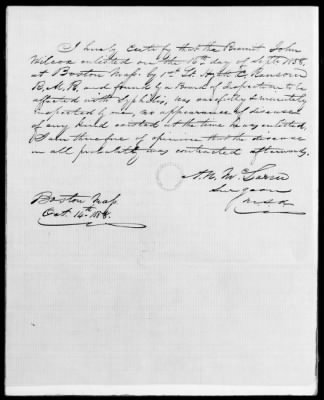 I hereby certify that the Recruit John
Wilcox enlisted on the 16th day of Sept 1858,
at Boston Mass. by 1st Lt.
and found by a Board of Inspection to be
affected with Syphilis, was carefully & minutely
inspected by me, no appearance of disease
of any kind existed at the time he was enlisted,
I am therefore of opinion that the disease
in all probability was contracted afterwards.
A. N. McLaren
Surgeon
U.S.A.
Boston Mass
Oct. 14th 1858.